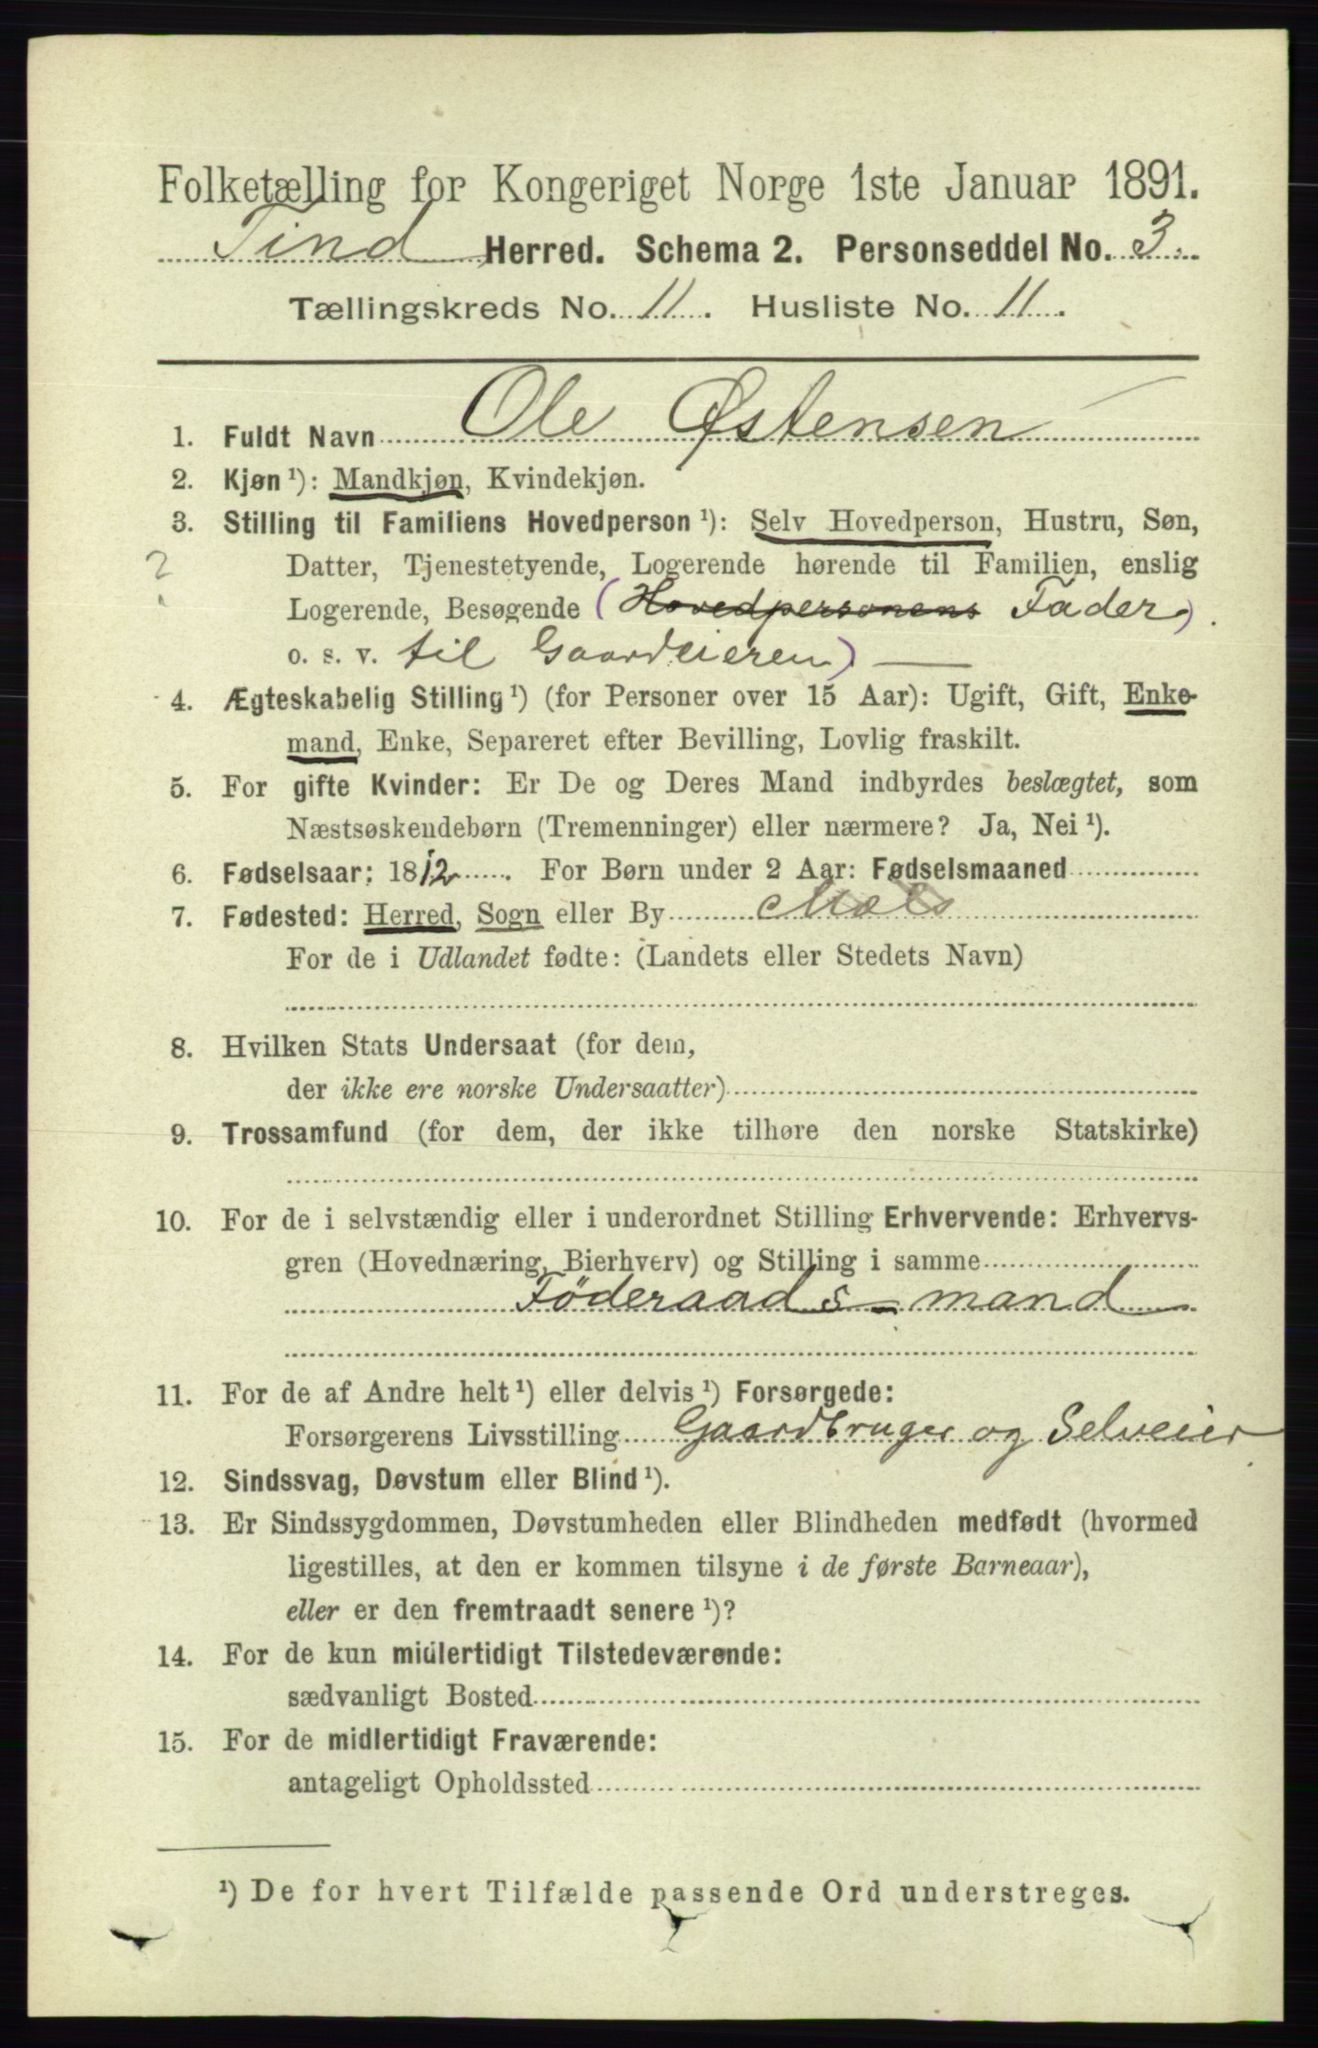 Folketælling for Kongeriget Norge 1ste Januar 1891.
Tind Herred. Schema 2. Personseddel No. 3.
Tællingskreds No. 11. Husliste No. 11.
1. Fuldt Navn Ole Østensen
2. Kjøn ¹): Mandkjøn, Kvindekjøn.
3. Stilling til Familiens Hovedperson ¹): Selv Hovedperson, Hustru, Søn,
? Datter, Tjenestetyende, Logerende hørende til Familien, enslig
Logerende, Besøgende (Hovedpersonens Fader)
o. s. v. til Gaardeieren)
4. Ægteskabelig Stilling ¹) (for Personer over 15 Aar): Ugift, Gift, Enke-
mand, Enke, Separeret efter Bevilling, Lovlig fraskilt.
5. For gifte Kvinder: Er De og Deres Mand indbyrdes beslægtet, som
Næstsøskendebørn (Tremenninger) eller nærmere? Ja, Nei ¹).
6. Fødselsaar: 1812. For Børn under 2 Aar: Fødselsmaaned
7. Fødested: Herred, Sogn eller By
For de i Udlandet fødte: (Landets eller Stedets Navn)
8. Hvilken Stats Undersaat (for dem,
der ikke ere norske Undersaatter)
9. Trossamfund (for dem, der ikke tilhøre den norske Statskirke)
10. For de i selvstændig eller i underordnet Stilling Erhvervende: Erhvervs-
gren (Hovednæring, Bierhverv) og Stilling i samme
Föderaads-mand
11. For de af Andre helt ¹) eller delvis ¹) Forsørgede:
Forsørgerens Livsstilling Gaardbruger og Selveier
12. Sindssvag, Døvstum eller Blind ¹).
13. Er Sindssygdommen, Døvstumheden eller Blindheden medfødt (hvormed
ligestilles, at den er kommen tilsyne i de første Barneaar),
eller er den fremtraadt senere ¹)?
14. For de kun midlertidigt Tilstedeværende:
sædvanligt Bosted
15. For de midlertidigt Fraværende:
antageligt Opholdssted
¹) De for hvert Tilfælde passende Ord understreges.